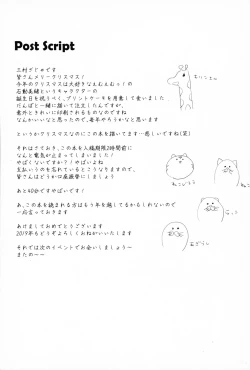 Post Script
三村ざじゅです
皆さんメリークリスマス！
今年のクリスマスは大好きなえむえむっ！の
石動美緒というキャラクターの
誕生日を祝うべく、プリントケーキを用意して食いました
だんぼと一緒に描いて注文したんですが、
意外ときれいに印刷されるものなのですね
なんかいいなと思ったので、毎年やろうかなと思います
というかクリスマスなのにこの本を描いてます…悲しいですね(笑)
それはさておき、この本を入稿期限2時間前に
なんと電気が止まってしまいました！
やばくないですか？やばいよね？
支払いうのを忘れているとこうなりますので、
皆さんはどうか口座振替にしましょう
あと40分ですやばいです！
あ、この本を読まれる方はもう年を越してるかもしれないので
一応言っておきます
あけましておめでとうございます
2019年もどうぞよろしくおねがいいたします
それでは次のイベントでお会いしましょう～
またの～～